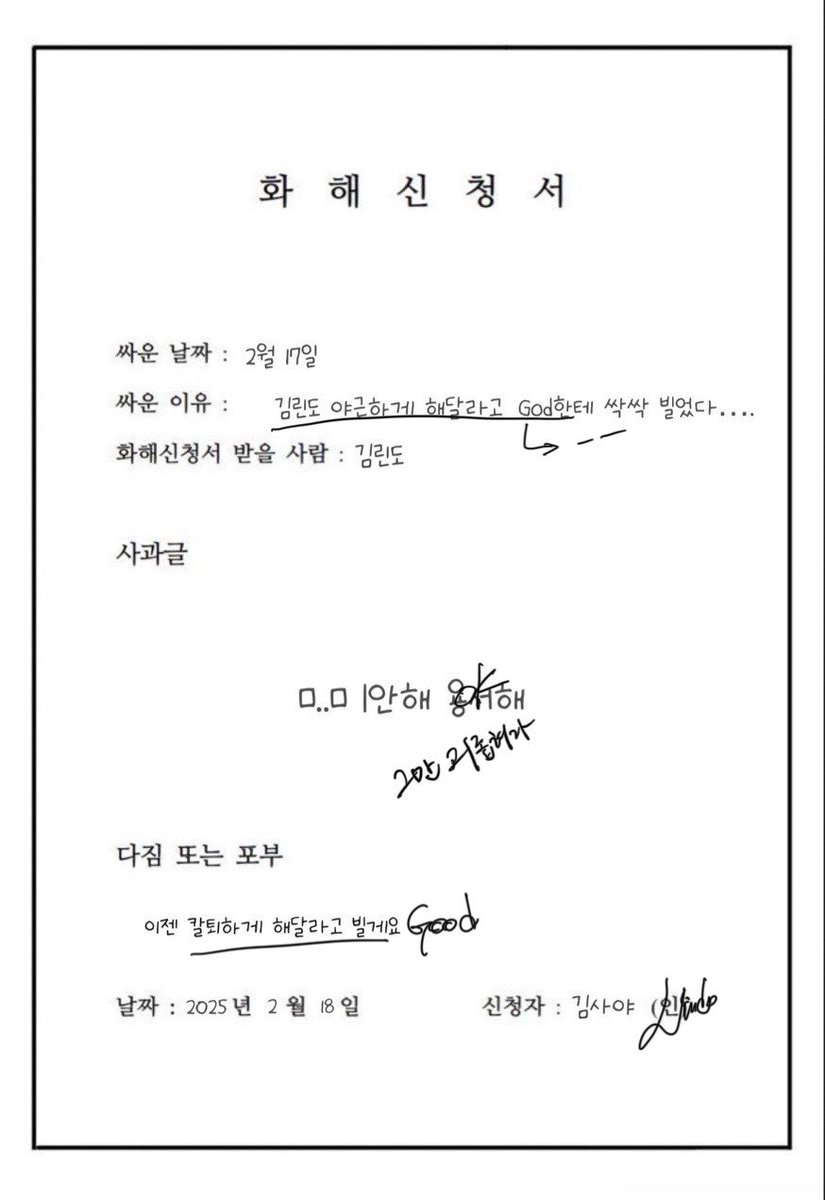 화 해 신 청 서
싸운 날짜 : 2월 17일
싸운 이유 : 김린도 야근하게 해달라고 God한테 싹싹 빌었다....
화해신청서 받을 사람 : 김린도
사과글
ㅁ..ㅁ ㅣ안해 용서해
OK
그만 괴롭혀라
다짐 또는 포부
이젠 칼퇴하게 해달라고 빌게요 Good
날짜 : 2025 년 2 월 18 일 신청자 : 김사야 (인)